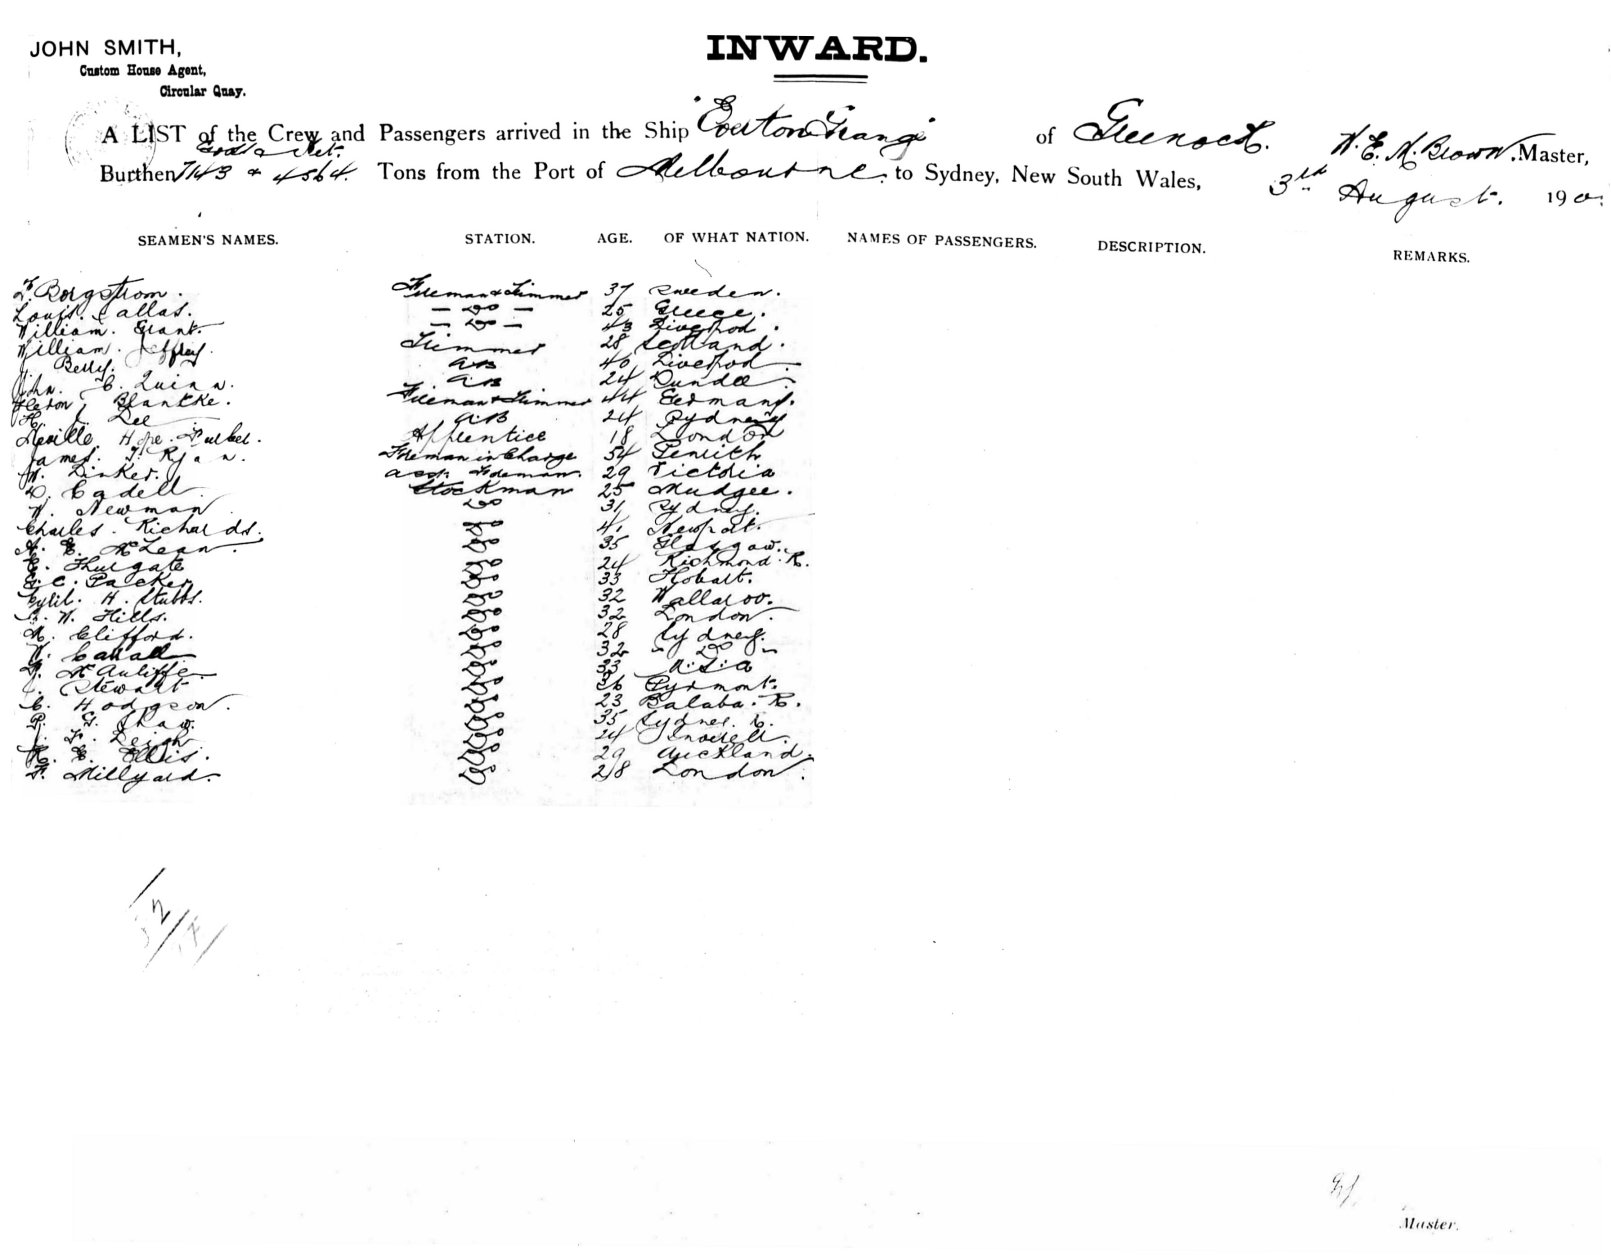 JOHN SMITH,
Custom House Agent,
Circular Quay.
INWARD.
A LIST of the Crew and Passengers arrived in the Ship of Greenock. W. E. N. Brown. Master,
Burthen 7143 & 4564. Tons from the Port of Melbourne. to Sydney, New South Wales, 3rd August. 190
SEAMEN'S NAMES. STATION. AGE. OF WHAT NATION. NAMES OF PASSENGERS. DESCRIPTION. REMARKS.
Borgstrom. Fireman & Trimmer 37 Sweden.
Louis. Callas. — Do — 25 Greece.
William. Grant. — Do — 43 Liverpool.
William. Jeffrey. Trimmer 28 Scotland.
Berry. AB 40 Liverpool
John. C. Quinn. AB 24 Dundee
Blantke. Fireman & Trimmer 44 Germany.
Lee AB 24 Sydney
Neville. Hope. Apprentice 18 London
James. T. Ryan. Foreman in Charge 54 Penrith
W. Dinker. Asst. Foreman. 29 Victoria
D. Cadell. Stockman 25 Mudgee.
W. Newman Do 31 Sydney.
Charles. Richards. Do 41 Newport.
A. E. McLean. Do 35 Glasgow.
Thurgate Do 24 Richmond. R.
G. C. Packer Do 33 Hobart.
H. Stubbs. Do 32 Wallaroo.
W. Hills. Do 32 London.
A. Clifford. Do 28 Sydney.
W. Do 32 - Do -
McAuliffe Do 33
Stewart Do 26 Pyrmont.
C. Hodgson. Do 23 Balaba. R.
Shaw. Do 35 Sydney.
Leigh Do 24 Inverell.
E. Ellis. Do 29 Auckland.
F. Millyard. Do 28 London.
Master.